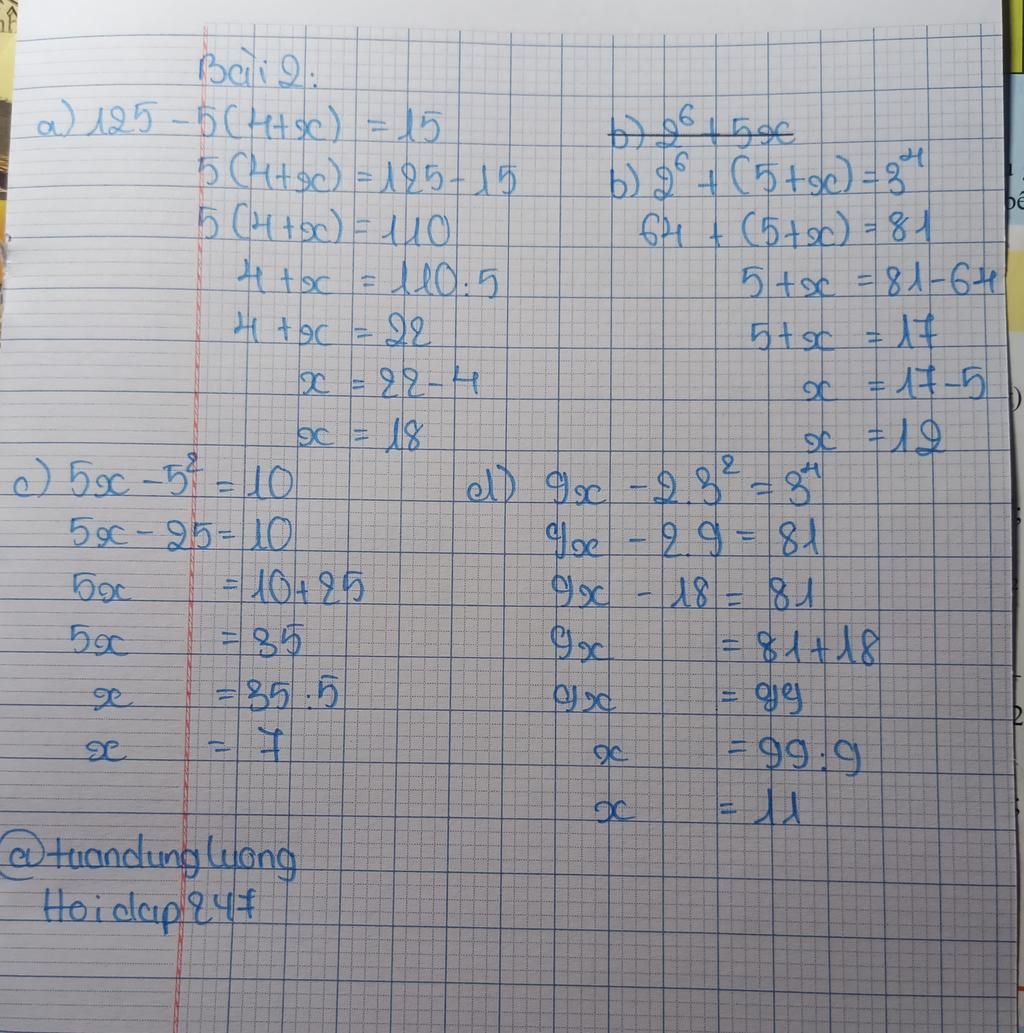 Bài 2:
a) 125 - 5(4+x) = 15
5(4+x) = 125 - 15
5(4+x) = 110
4 + x = 110 : 5
4 + x = 22
x = 22 - 4
x = 18
b) 2⁶ + 5x
b) 2⁶ + (5+x) = 3⁴
64 + (5+x) = 81
5 + x = 81 - 64
5 + x = 17
x = 17 - 5
x = 12
c) 5x - 5² = 10
5x - 25 = 10
5x = 10 + 25
5x = 35
x = 35 : 5
x = 7
d) 9x - 2.3² = 3⁴
9x - 2.9 = 81
9x - 18 = 81
9x = 81 + 18
9x = 99
x = 99 : 9
x = 11
@tuandungluong
Hoidap247